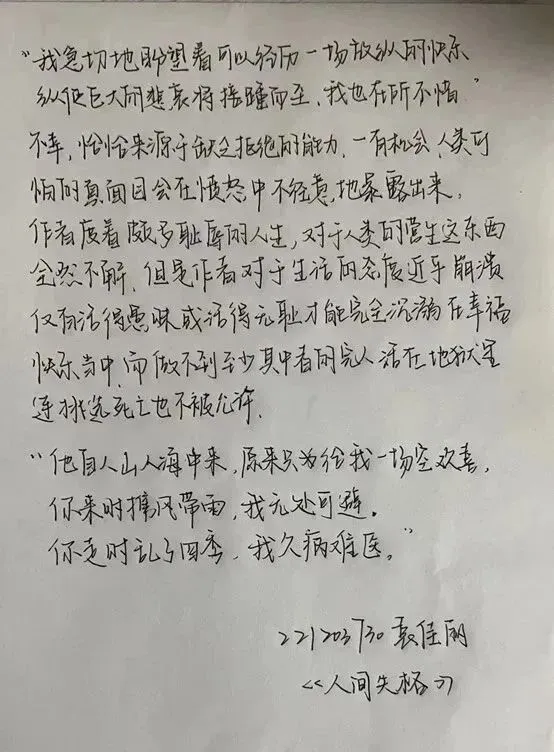 “我急切地盼望着可以经历一场放纵的快乐
纵使巨大的悲哀将接踵而至，我也在所不惜”
不幸，恰恰来源于缺乏拒绝的能力，一有机会，人类可
怕的真面目会在愤怒中不经意，地暴露出来。
作者度着颇多耻辱的人生，对于人类的营生这东西
全然不解，但是作者对于生活的态度近乎崩溃
仅有活得愚昧或活得无耻才能完全沉溺在幸福
快乐当中，而做不到至少其中者的完人活在地狱里
连挑选死亡也不被允许。
“他自人山人海中来，原来只为给我一场空欢喜，
你来时携风带雨，我无处可避。
你走时乱了四季，我久病难医。”
221203730 袁佳丽
《人间失格》